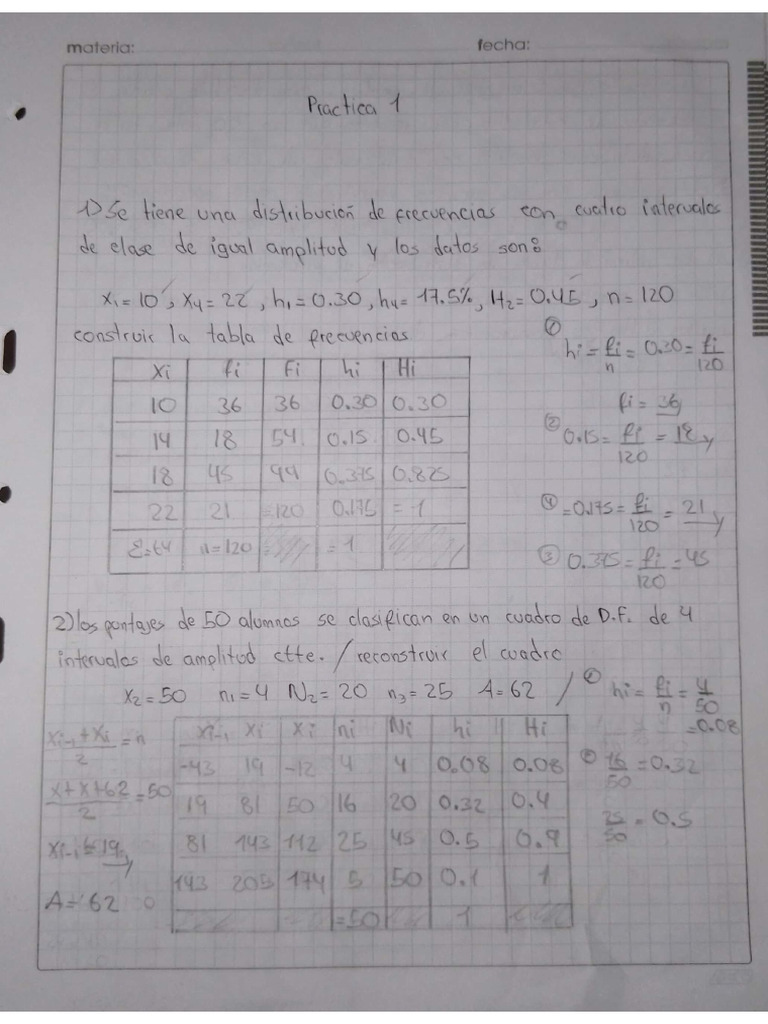 materia:
fecha:
Practica 1
1) Se tiene una distribución de frecuencias con cuatro intervalos
de clase de igual amplitud y los datos son:
X₁ = 10, X₄ = 22, h₁ = 0.30, h₄ = 17.5%, H₂ = 0.45, n = 120
construir la tabla de frecuencias
① hi = fi/n = 0.30 = fi/120
fi = 36
② 0.15 = fi/120 = 18
④ = 0.175 = fi/120 = 21
③ 0.375 = fi/120 = 45
Xi fi Fi hi Hi
10 36 36 0.30 0.30
14 18 54 0.15 0.45
18 45 99 0.375 0.825
22 21 =120 0.175 = 1
Σ=64 n=120 = 1
2) los pontajes de 50 alumnos se clasifican en un cuadro de D.F. de 4
intervalos de amplitud ctte. / reconstruir el cuadro
X₂ = 50 n₁ = 4 N₂ = 20 n₃ = 25 A = 62 /
hi = fi/n = 4/50
= 0.08
16/50 = 0.32
25/50 = 0.5
Xi-1 + Xi / 2 = n
X + X + 62 / 2 = 50
Xi-1 = 19
A = 62
Xi-1 Xi Xi ni Ni hi Hi
-43 19 -12 4 4 0.08 0.08
19 81 50 16 20 0.32 0.4
81 143 112 25 45 0.5 0.9
143 205 174 5 50 0.1 1
=50 1